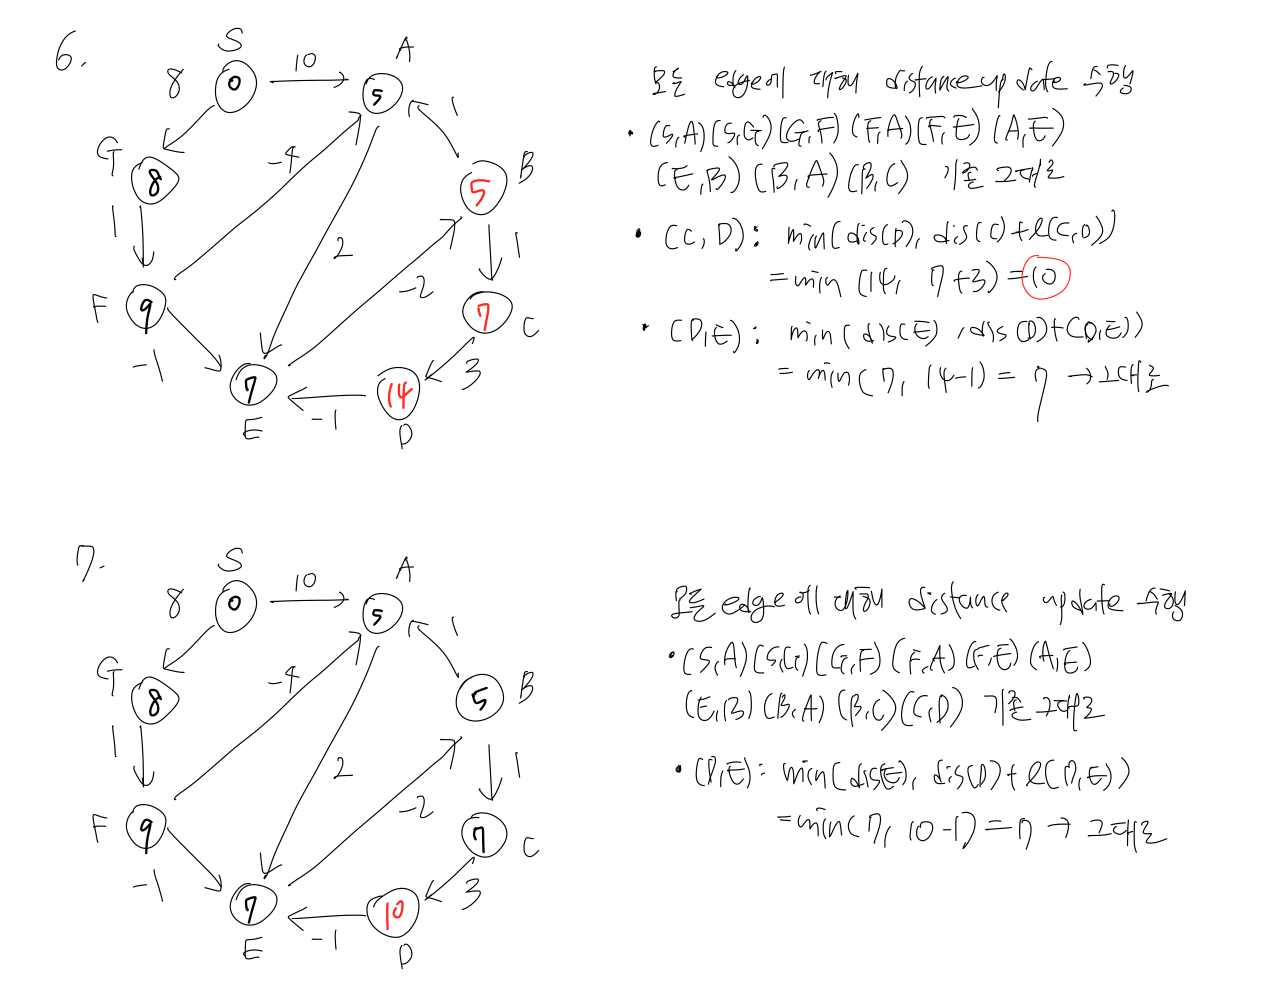 6.
S
10
A
0
5
8
1
G
8
-4
B
5
1
2
1
F
9
-2
7
C
-1
7
3
14
-1
E
D
모든 edge에 대해 distance update 수행
• (S,A)(S,G)(G,F)(F,A)(F,E)(A,E)
(E,B)(B,A)(B,C) 기존 그대로
• (C,D): min(dis(D), dis(C)+l(C,D))
=min (14, 7+3)=10
• (D,E): min(dis(E), dis(D)+(D,E))
= min(7, 14-1) = 7 → 그대로
7.
S
10
A
0
5
8
1
G
8
-4
B
5
1
2
1
F
9
-2
7
C
-1
7
3
10
-1
E
D
모든 edge에 대해 distance update 수행
• (S,A)(S,G)(G,F)(F,A)(F,E)(A,E)
(E,B)(B,A)(B,C)(C,D) 기존 그대로
• (D,E): min(dis(E), dis(D)+l(D,E))
=min(7, 10-1)=7 → 그대로